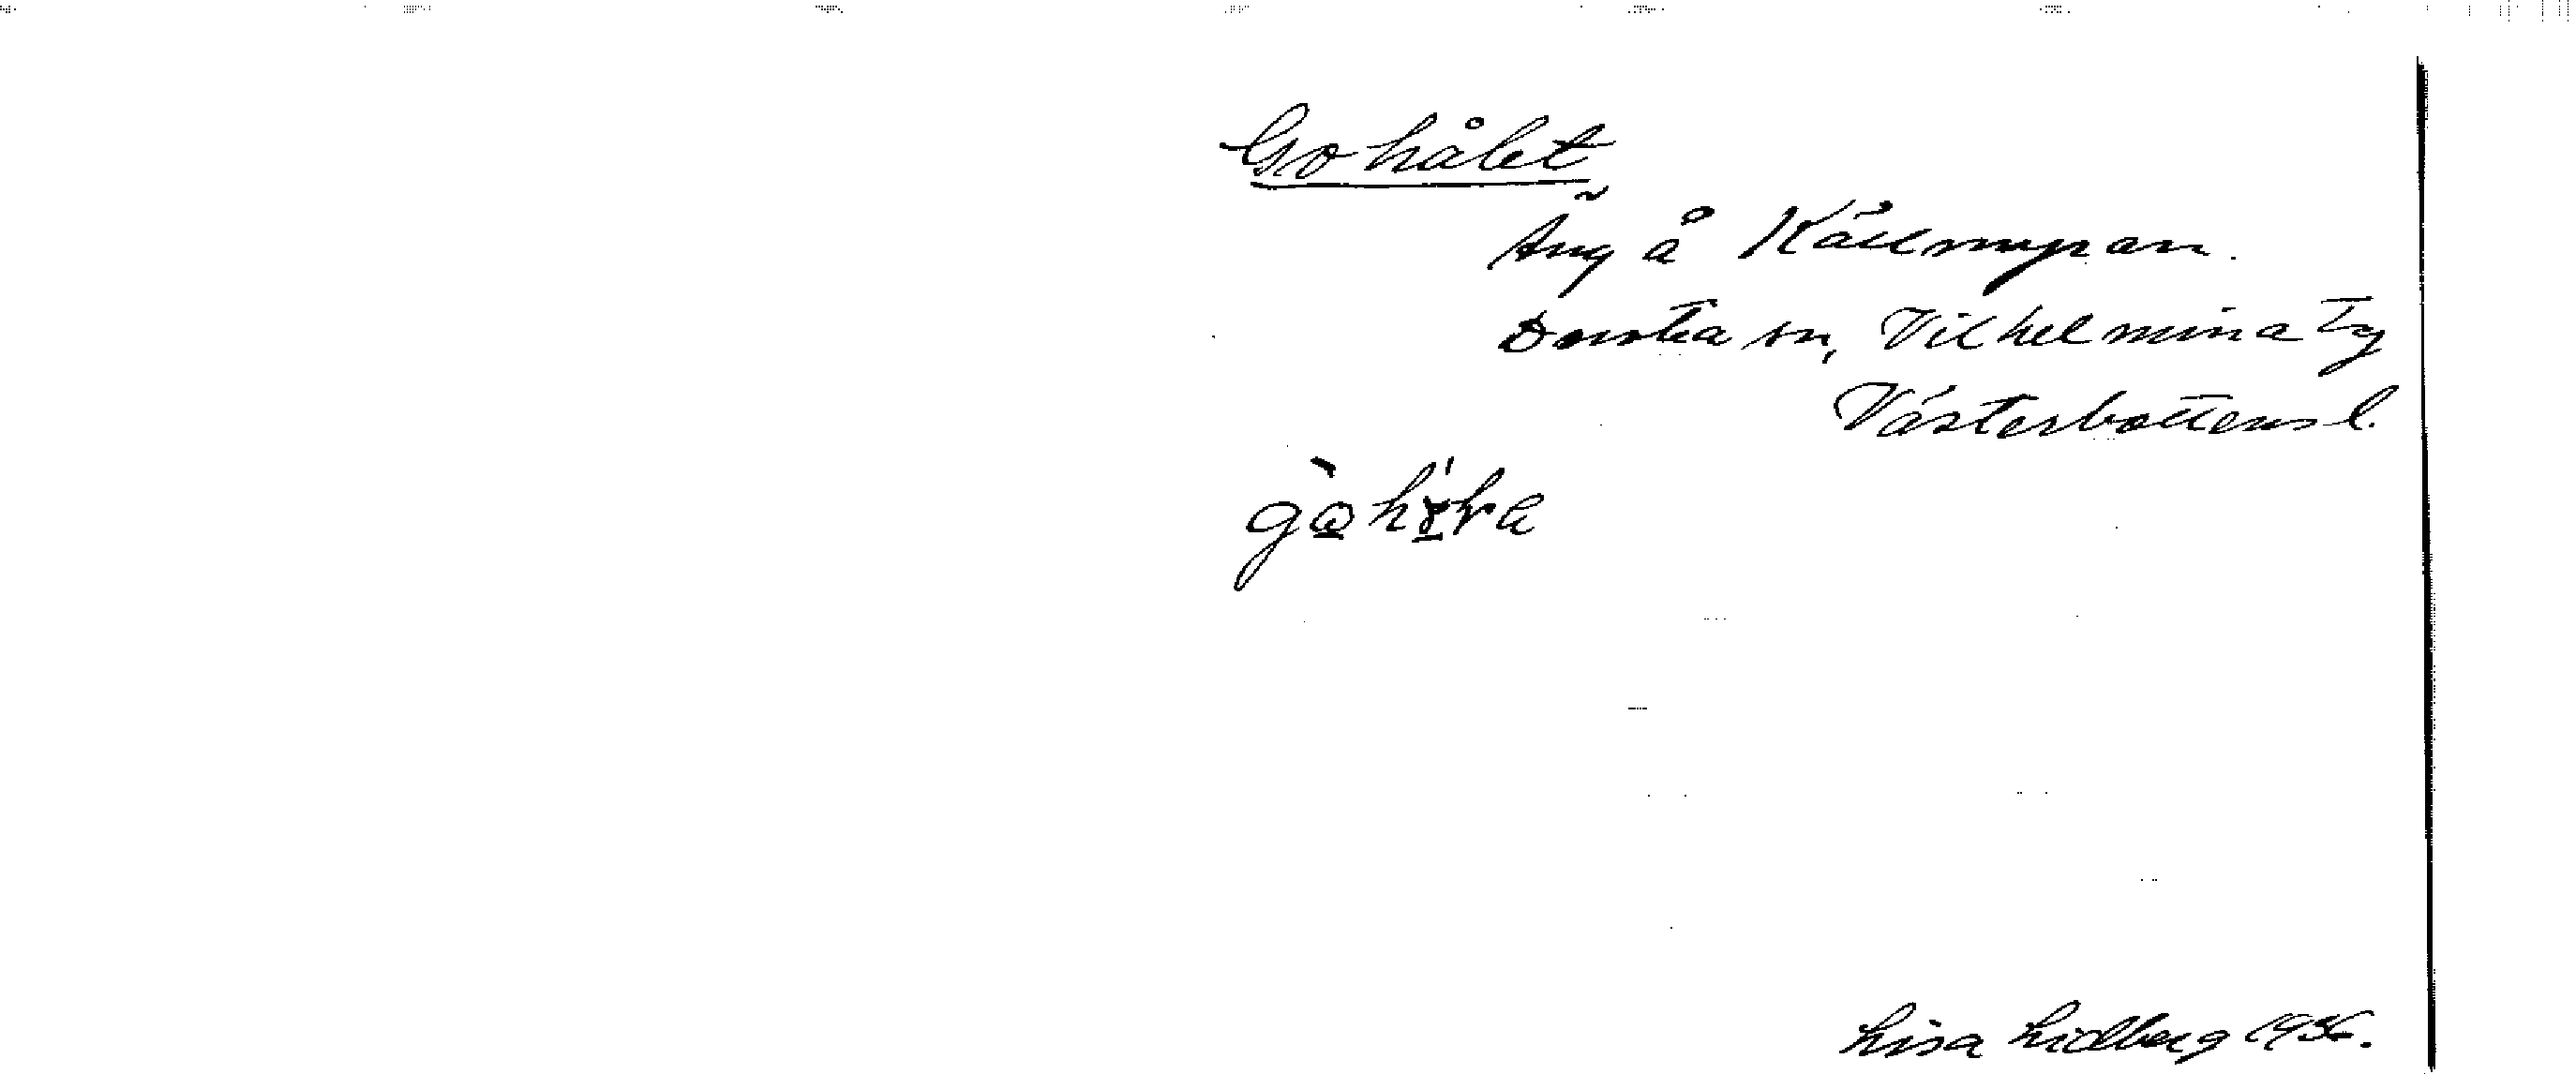 Gohålet
Äng å Källmyran.
Dorotea sn, Vilhelmina Tg
Västerbottens l.
Lisa Lidberg 1936.